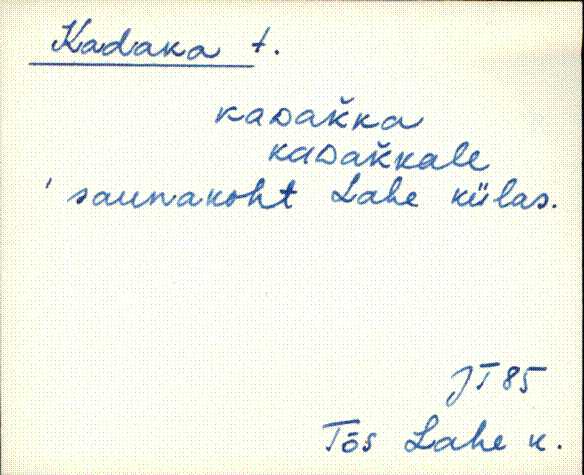 Kadaka t.
kaᴅak̆ka
kaᴅak̆kale
' saunakoht Lahe külas.
JT 85
Tõs Lahe k.